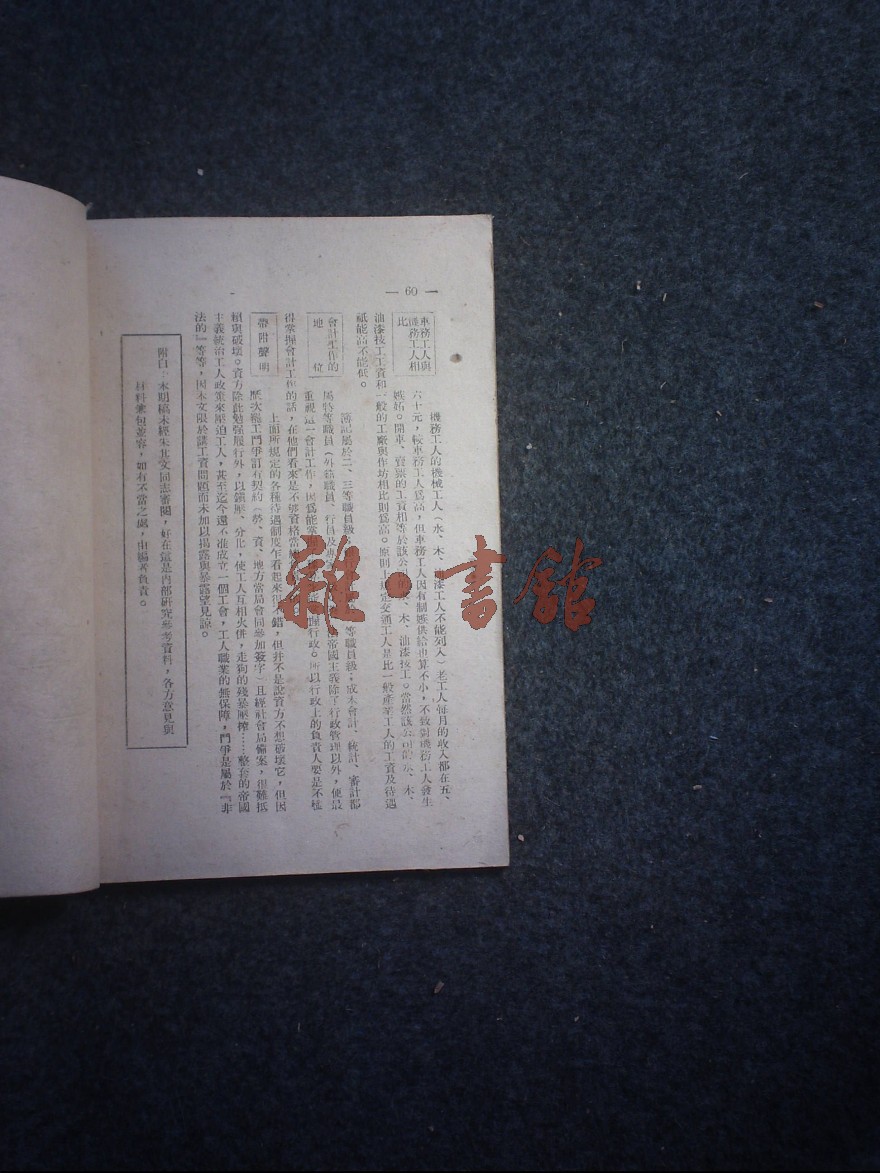 — 60 —
車務工人與
機務工人相
比
機務工人的機械工人（水、木、漆工人不能列入）老工人每月的收入都在五、
六十元，較車務工人爲高，但車務工人因有制服供給也算不小，不致對機務工人發生
嫉妬。開車、賣票的工資相等於該公司的水、木、油漆技工。當然該公司的水、木、
油漆技工工資和一般的工廠與作坊相比則爲高。原則上規定交通工人是比一般產業工人的工資及待遇
祇能高不能低。
會計工作的
地位
簿記屬於二、三等職員級，等職員級；成本會計、統計、審計都
屬特等職員（外籍職員、行員及專帝國主義除了行政管理以外，便最
重視這一會計工作，因爲能掌握行政。所以行政上的負責人要是不能
得掌握會計工作的話，在他們看來是不够資格當
帶附聲明
上面所規定的各種待遇制度乍看起來很不錯，但幷不是說資方不想破壞它，但因
歷次罷工鬥爭訂有契約（勞、資、地方當局會同參加簽字）且經社會局備案，很難抵
賴與破壞。資方除此勉强履行外，以鎮壓、分化，使工人互相火併，走狗的殘暴壓搾……整套的帝國
主義統治工人政策來壓迫工人，甚至迄今還不准成立一個工會，工人職業的無保障，鬥爭是屬於『非
法的』等等，因本文限於講工資問題而未加以揭露與暴露望見諒。
附白：本期稿未經朱北文同志審閱，好在儘是內部研究參考資料，各方意見與
材料兼包並容，如有不當之處，由編者負責。
雜·書館